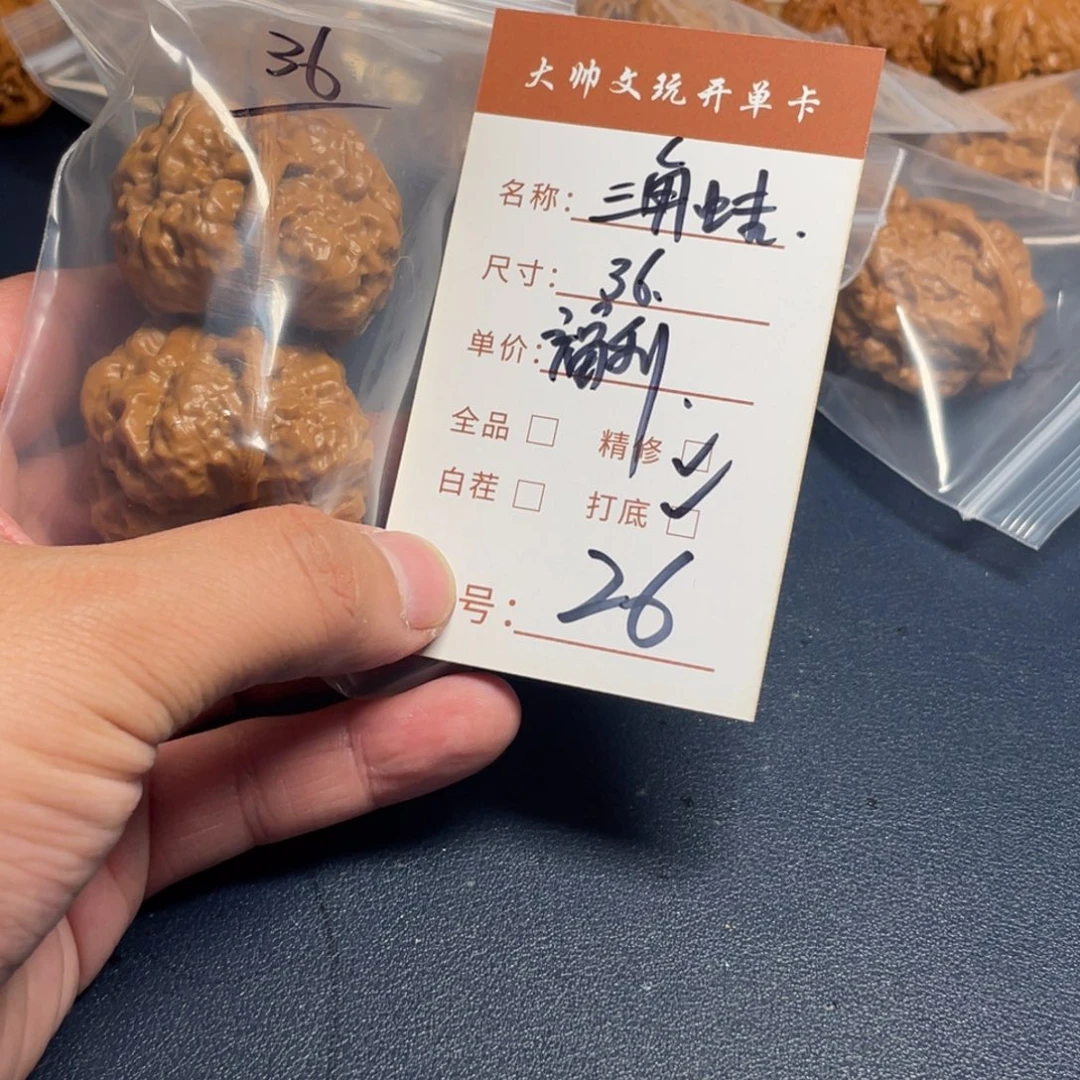 36
大帅文玩开单卡
名称：三角蛙.
尺寸：36.
单价：福利.
全品 □ 精修 ☑
白茬 □ 打底 ☑
号：26